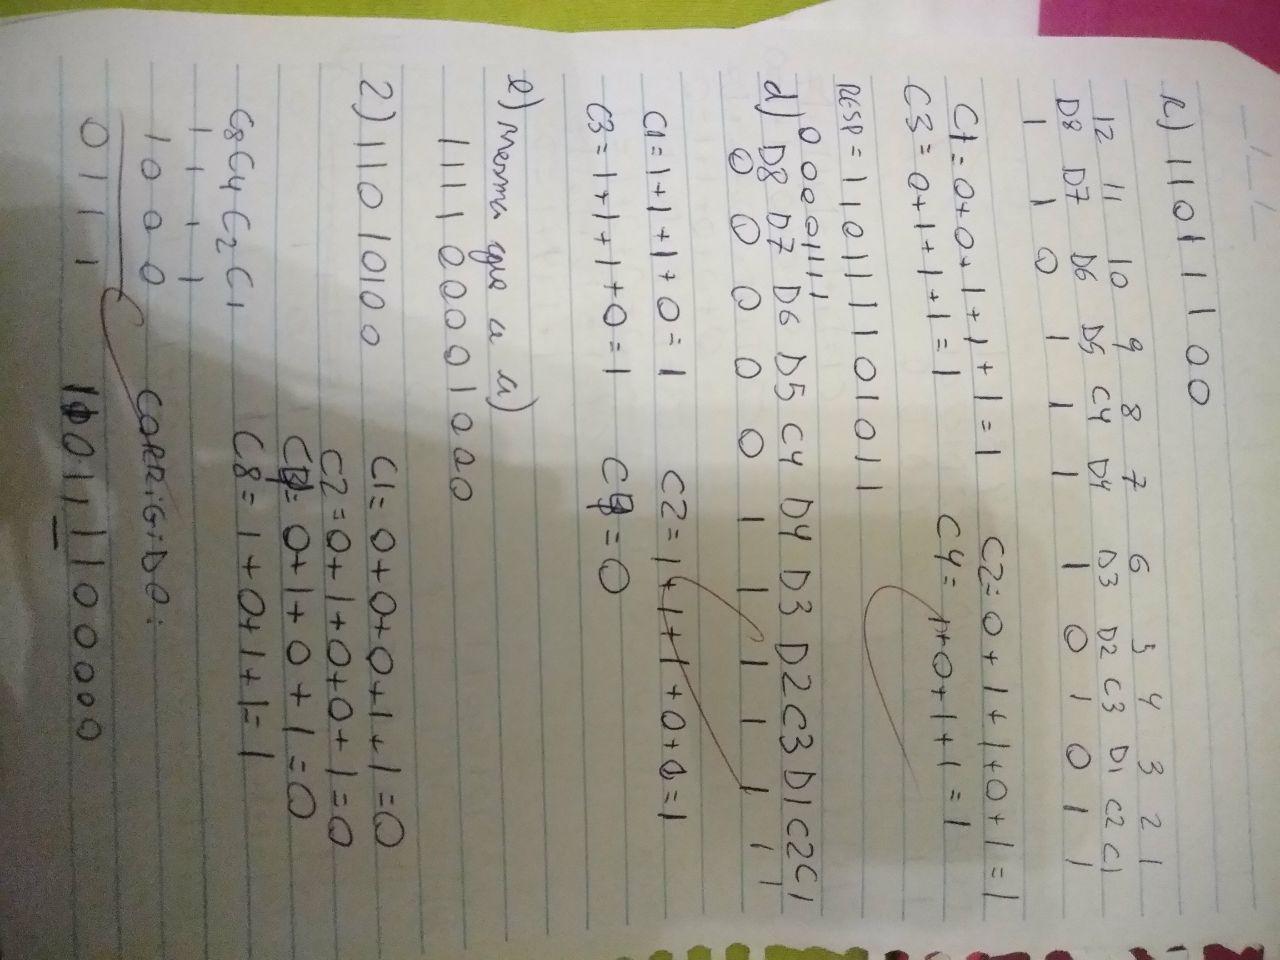 c) 11011100
12 11 10 9 8 7 6 5 4 3 2 1
D8 D7 D6 D5 C4 D4 D3 D2 C3 D1 C2 C1
1 1 0 1 1 1 1 0 1 0 1 1
C1=0+0+1+1+1=1 C2=0+1+1+0+1=1
C3=0+1+1+1=1 C4=1+0+1+1=1
RESP=110111101011
d) 00001111
D8 D7 D6 D5 C4 D4 D3 D2 C3 D1 C2 C1
0 0 0 0 0 1 1 1 1 1 1 1
C1=1+1+1+0=1 C2=1+1+1+0+0=1
C3=1+1+1+0=1 C4=0
e) mesma que a a)
111000001000
2) 11010100
C1=0+0+0+1+1=0
C2=0+1+0+0+1=0
C4=0+1+0+1=0
C8=1+0+1+1=1
C8 C4 C2 C1
1 1 1 1
1 0 0 0
0 1 1 1
CORRIGIDO: